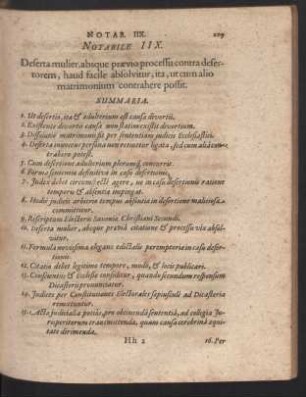 NOTAB. IIX. 209
NOTABILE IIX.
Deserta mulier, absque prævio processu contra deser-
torem, haud facile absolvitur, ita, ut cum alio
matrimonium contrahere possit.
SUMMARIA.
1. Ut desertio, ita & adulterium est causa divortii.
2. Existente divortii causa non statim existit divortium.
3. Dissolutio matrimonii fit per sententiam judicis Ecclesiastici.
4. Deserta innocens persona non retinetur ligata, sed cum alio con-
trahere potest.
5. Cum desertione adulterium plerumq; concurrit.
6. Forma sententiæ definitivæ in casu desertionis.
7. Judex debet circumspectè agere, ne in casu desertionis ratione
temporis & absentiæ impingat.
8. Hodiè judicis arbitrio tempus absentiæ in desertione malitiosa
committitur.
9. Rescriptum Electoris Saxoniæ Christiani Secundi.
10. Deserta mulier, absque præviâ citatione & processu vix absol-
vitur.
11. Formula novissima elegans edictalis peremptoriæ in casu deser-
tionis.
12. Citatio debet legitimo tempore, modis, & locis publicari.
13. Conscientiis & Ecclesiæ consulitur, quando secundum responsum
Dicasterii pronunciatur.
14. Judices per Constitutiones Electorales sæpiusculè ad Dicasteria
remittuntur.
15. Acta judicialia potiùs, pro obtinenda sententiâ, ad collegia Ju-
risperitorum transmittenda, quàm causa cerebrinâ æqui-
tate dirimenda.
Hh 2 16. Per